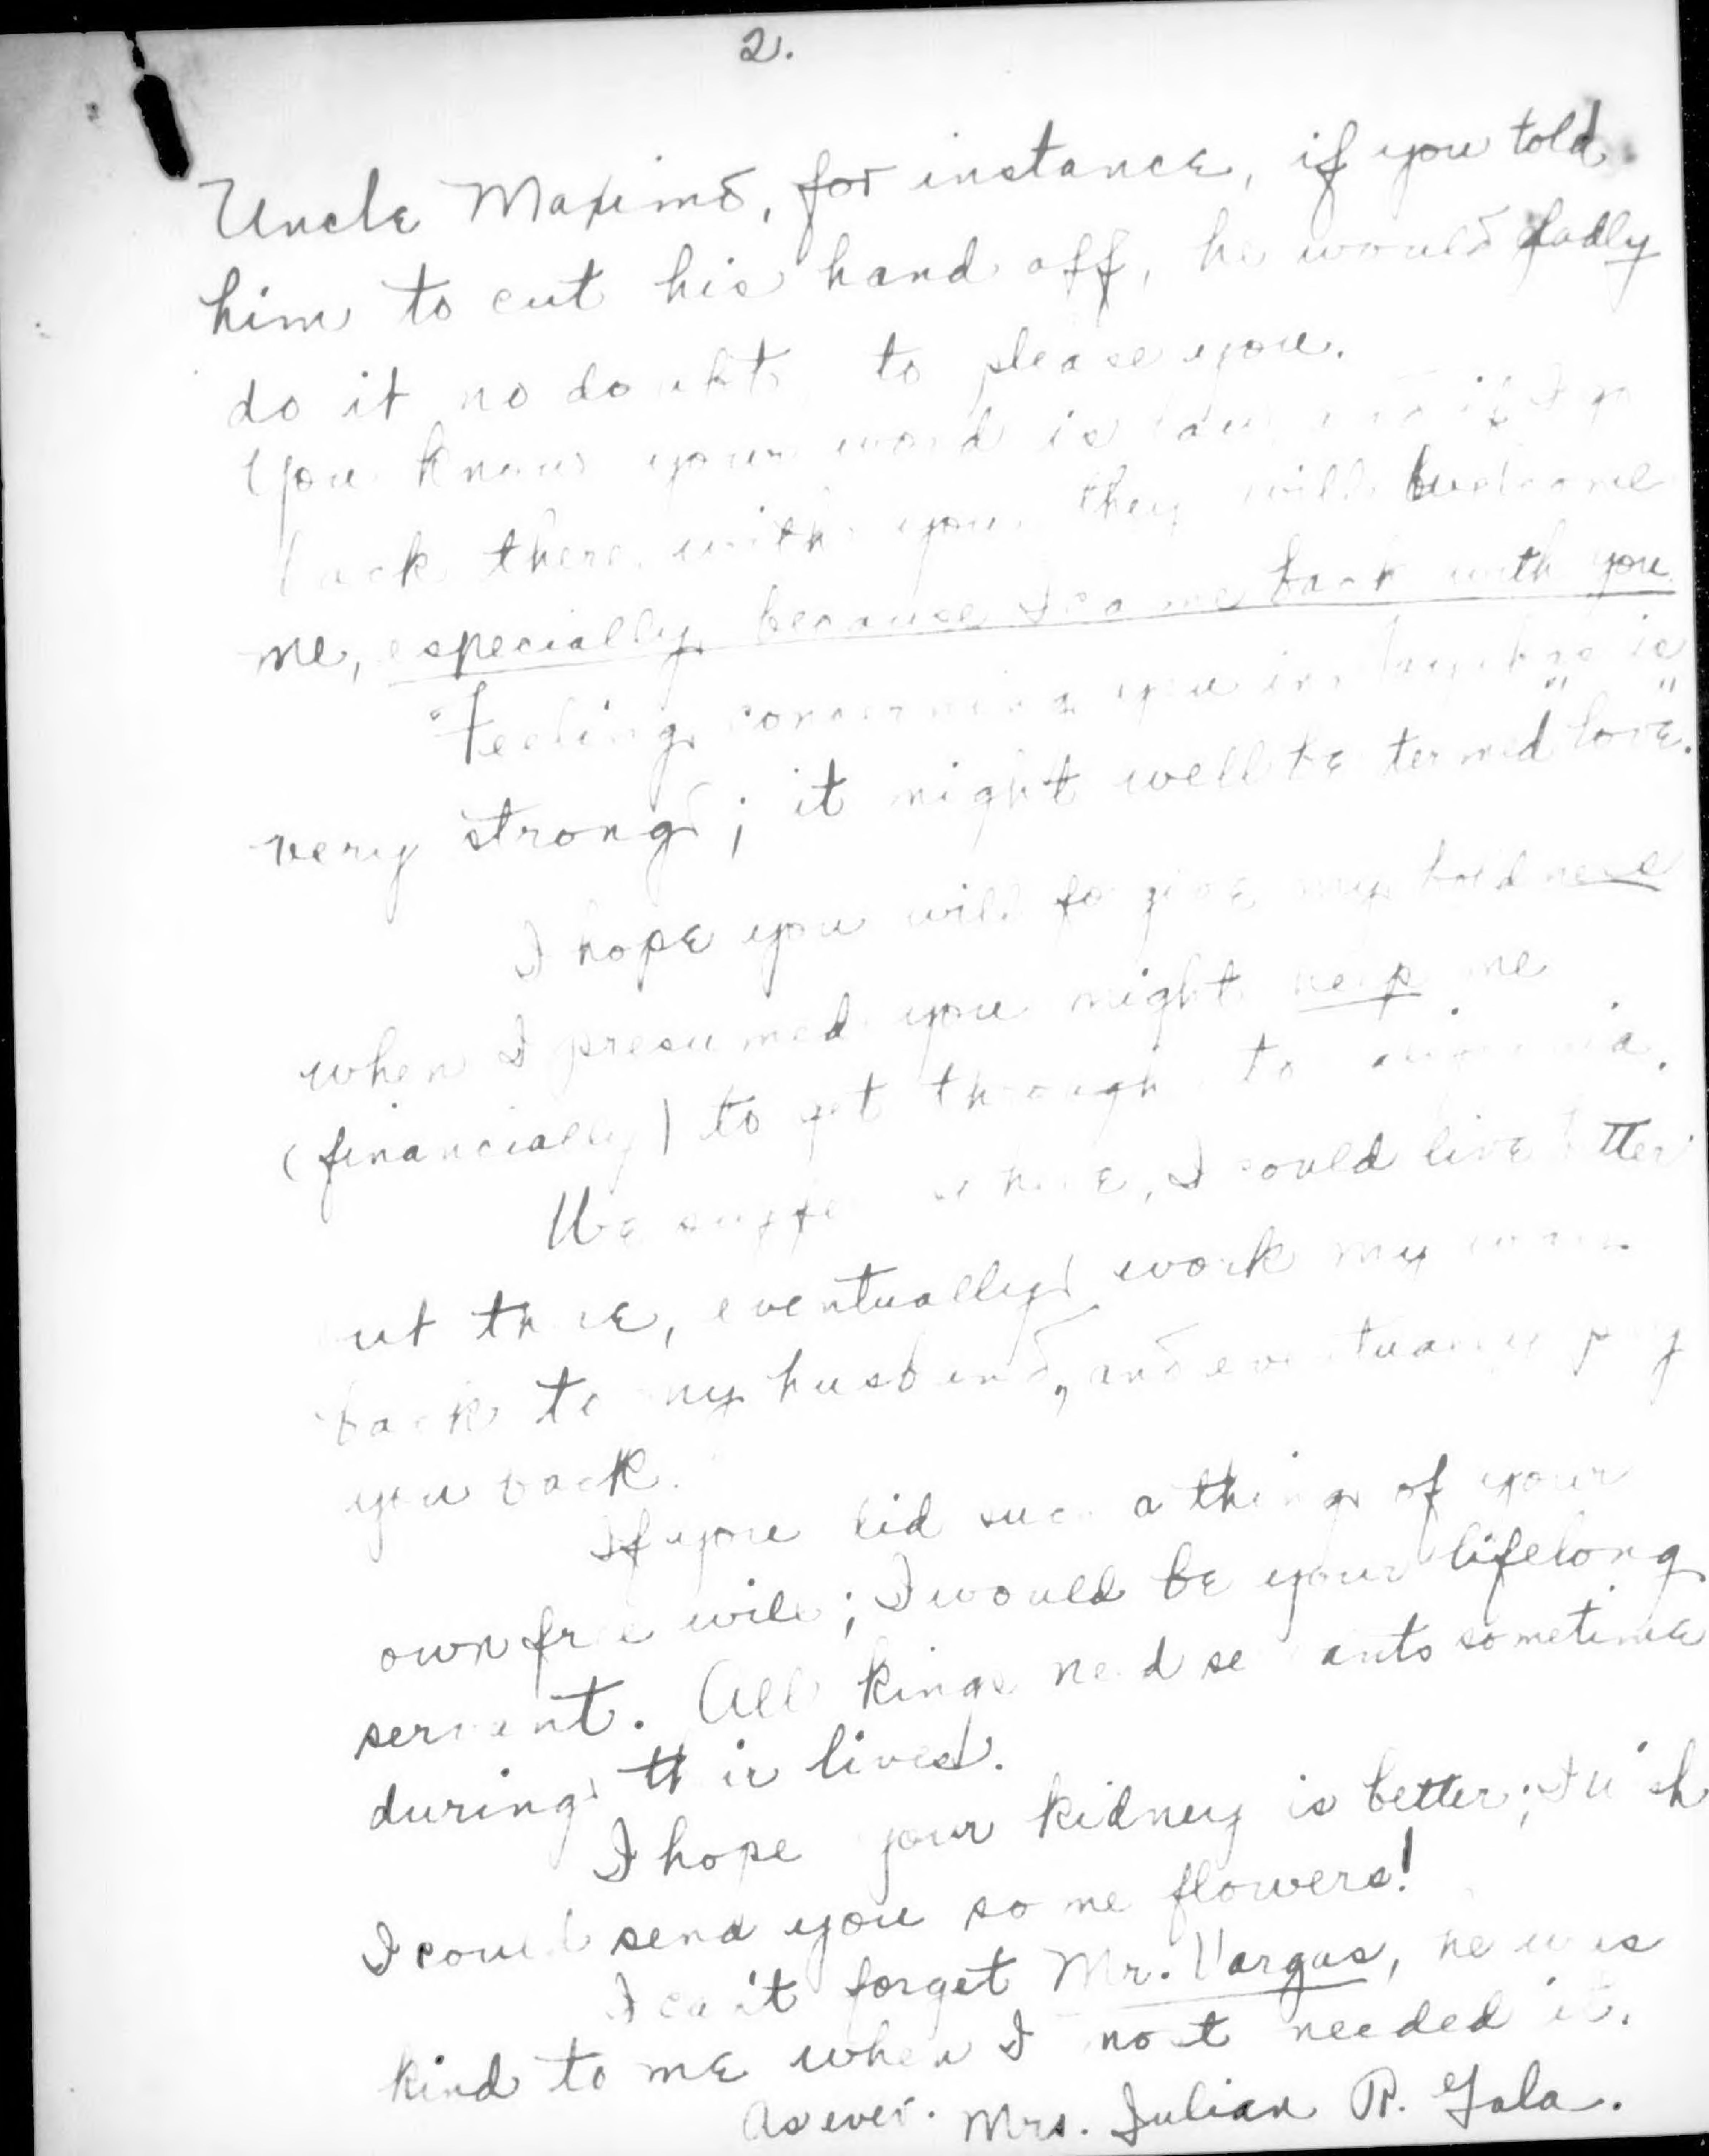 2.
Uncle Maximo, for instance, if you told
him to cut his hand off, he would gladly
do it no doubt, to please you.
You know your word is law, and if I go
back there with you they will welcome
me, especially because I came back with you
Feeling concerning you in is
very strong; it might well be termed "love".
I hope you will forgive my boldness
when I presumed you might help me
(financially) to get through to
We suffer here, I could live better
out there, eventually work my
back to my husband, and eventually pay
you back.
If you did such a thing of your
own free will; I would be your lifelong
servant. All kings need servants sometime
during their lives.
I hope your kidney is better; I wish
I could send you some flowers!
I can't forget Mr. Vargas, he was
kind to me when I most needed it.
As ever. Mrs. Julian R. Gala.